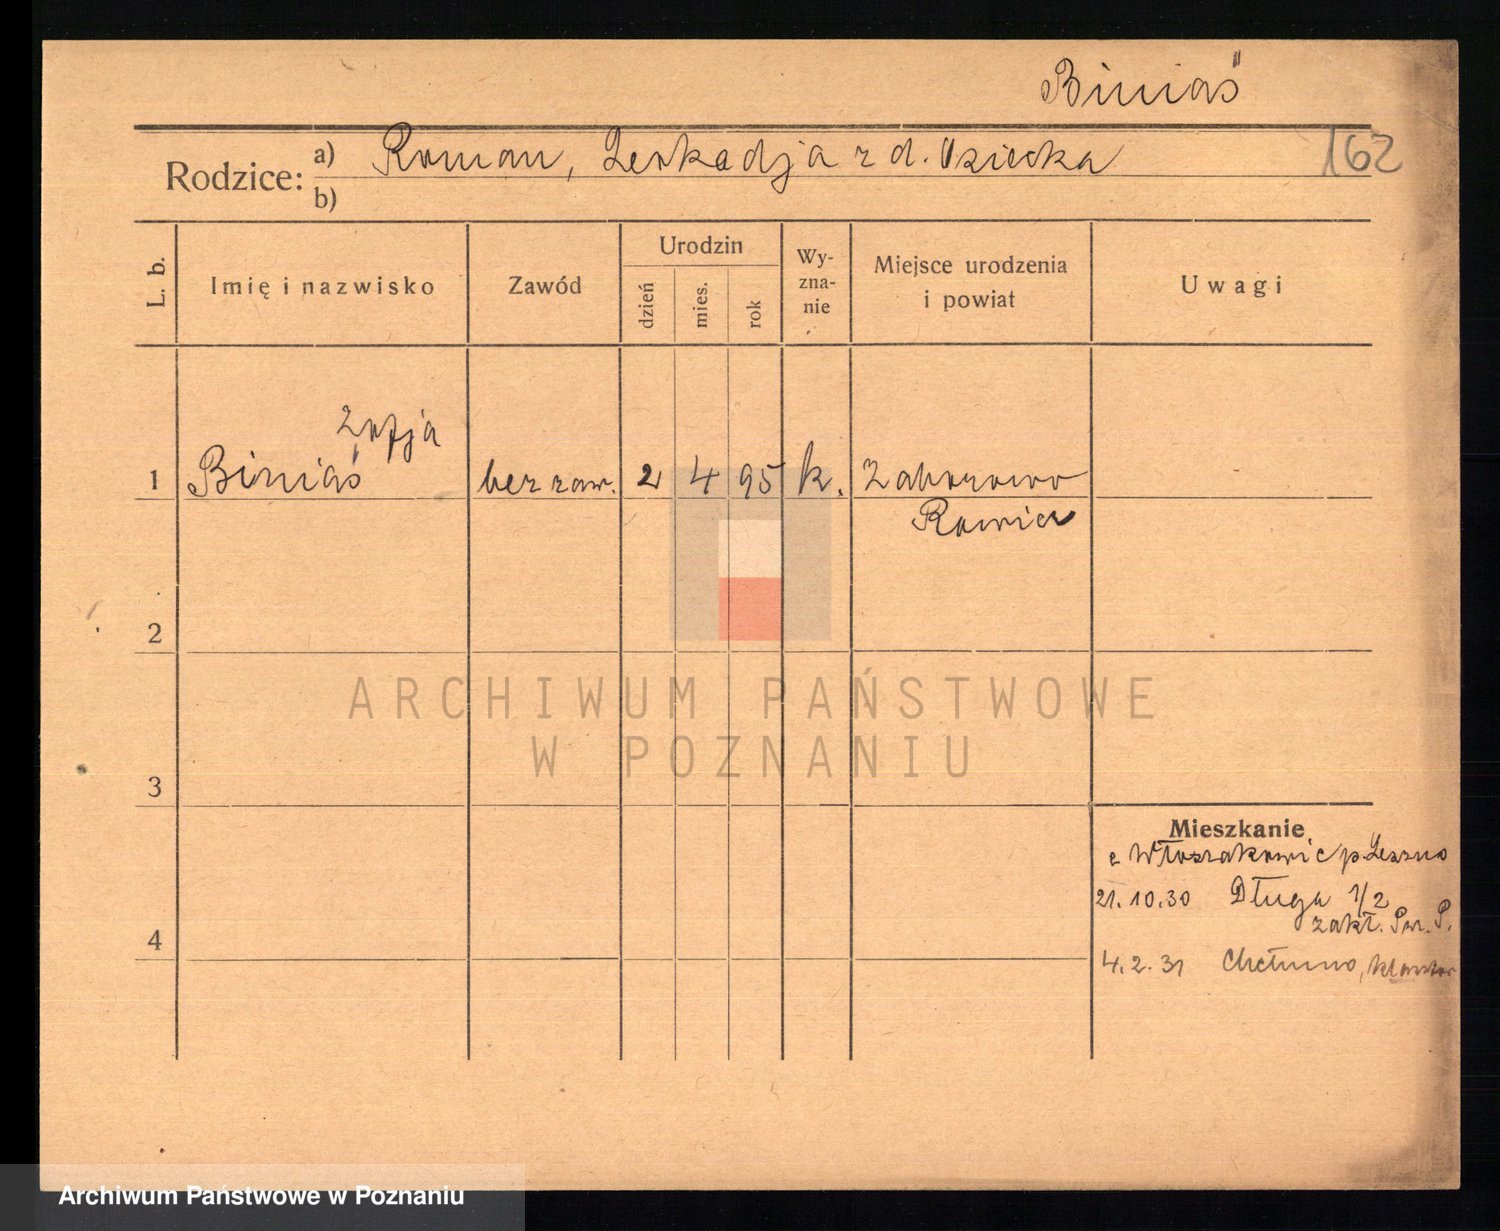 Biniaś
162
Rodzice: a) Roman, Leokadja z d. Osiecka
b)
L. b.
Imię i nazwisko
Zawód
Urodzin
dzień
mies.
rok
Wy-
zna-
nie
Miejsce urodzenia
i powiat
Uwagi
Zofja
1 Biniaś bez zaw. 2 4 95 k. Zaborowo
Rawicz
2
3
4
Mieszkanie
z Włoszakowic p. Leszno
21.10.30 Długa 1/2
zakł. P.
4.2.31 Chełmno, klasztor
ARCHIWUM PAŃSTWOWE
W POZNANIU
Archiwum Państwowe w Poznaniu